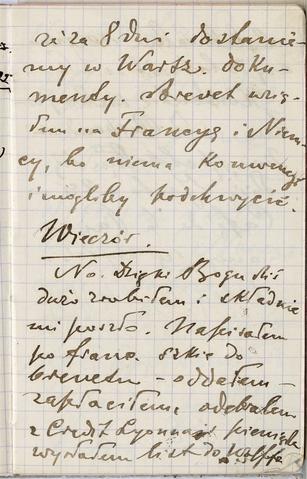 że za 8 dni dostanie-
my w Warsz. doku-
menty. Brevet wzią-
łem na Francyę i Niem-
cy, bo niema konwencyi
i mogliby podchwycić.
Wieczór.
No. Dzięki Bogu dziś
dużo zrobiłem i składnie
mi poszło. Napisałem
po franc. szkic do
brevetu - oddałem -
zapłaciłem, odebrałem
z Credit Lyonnais pieniądze
wysłałem list do